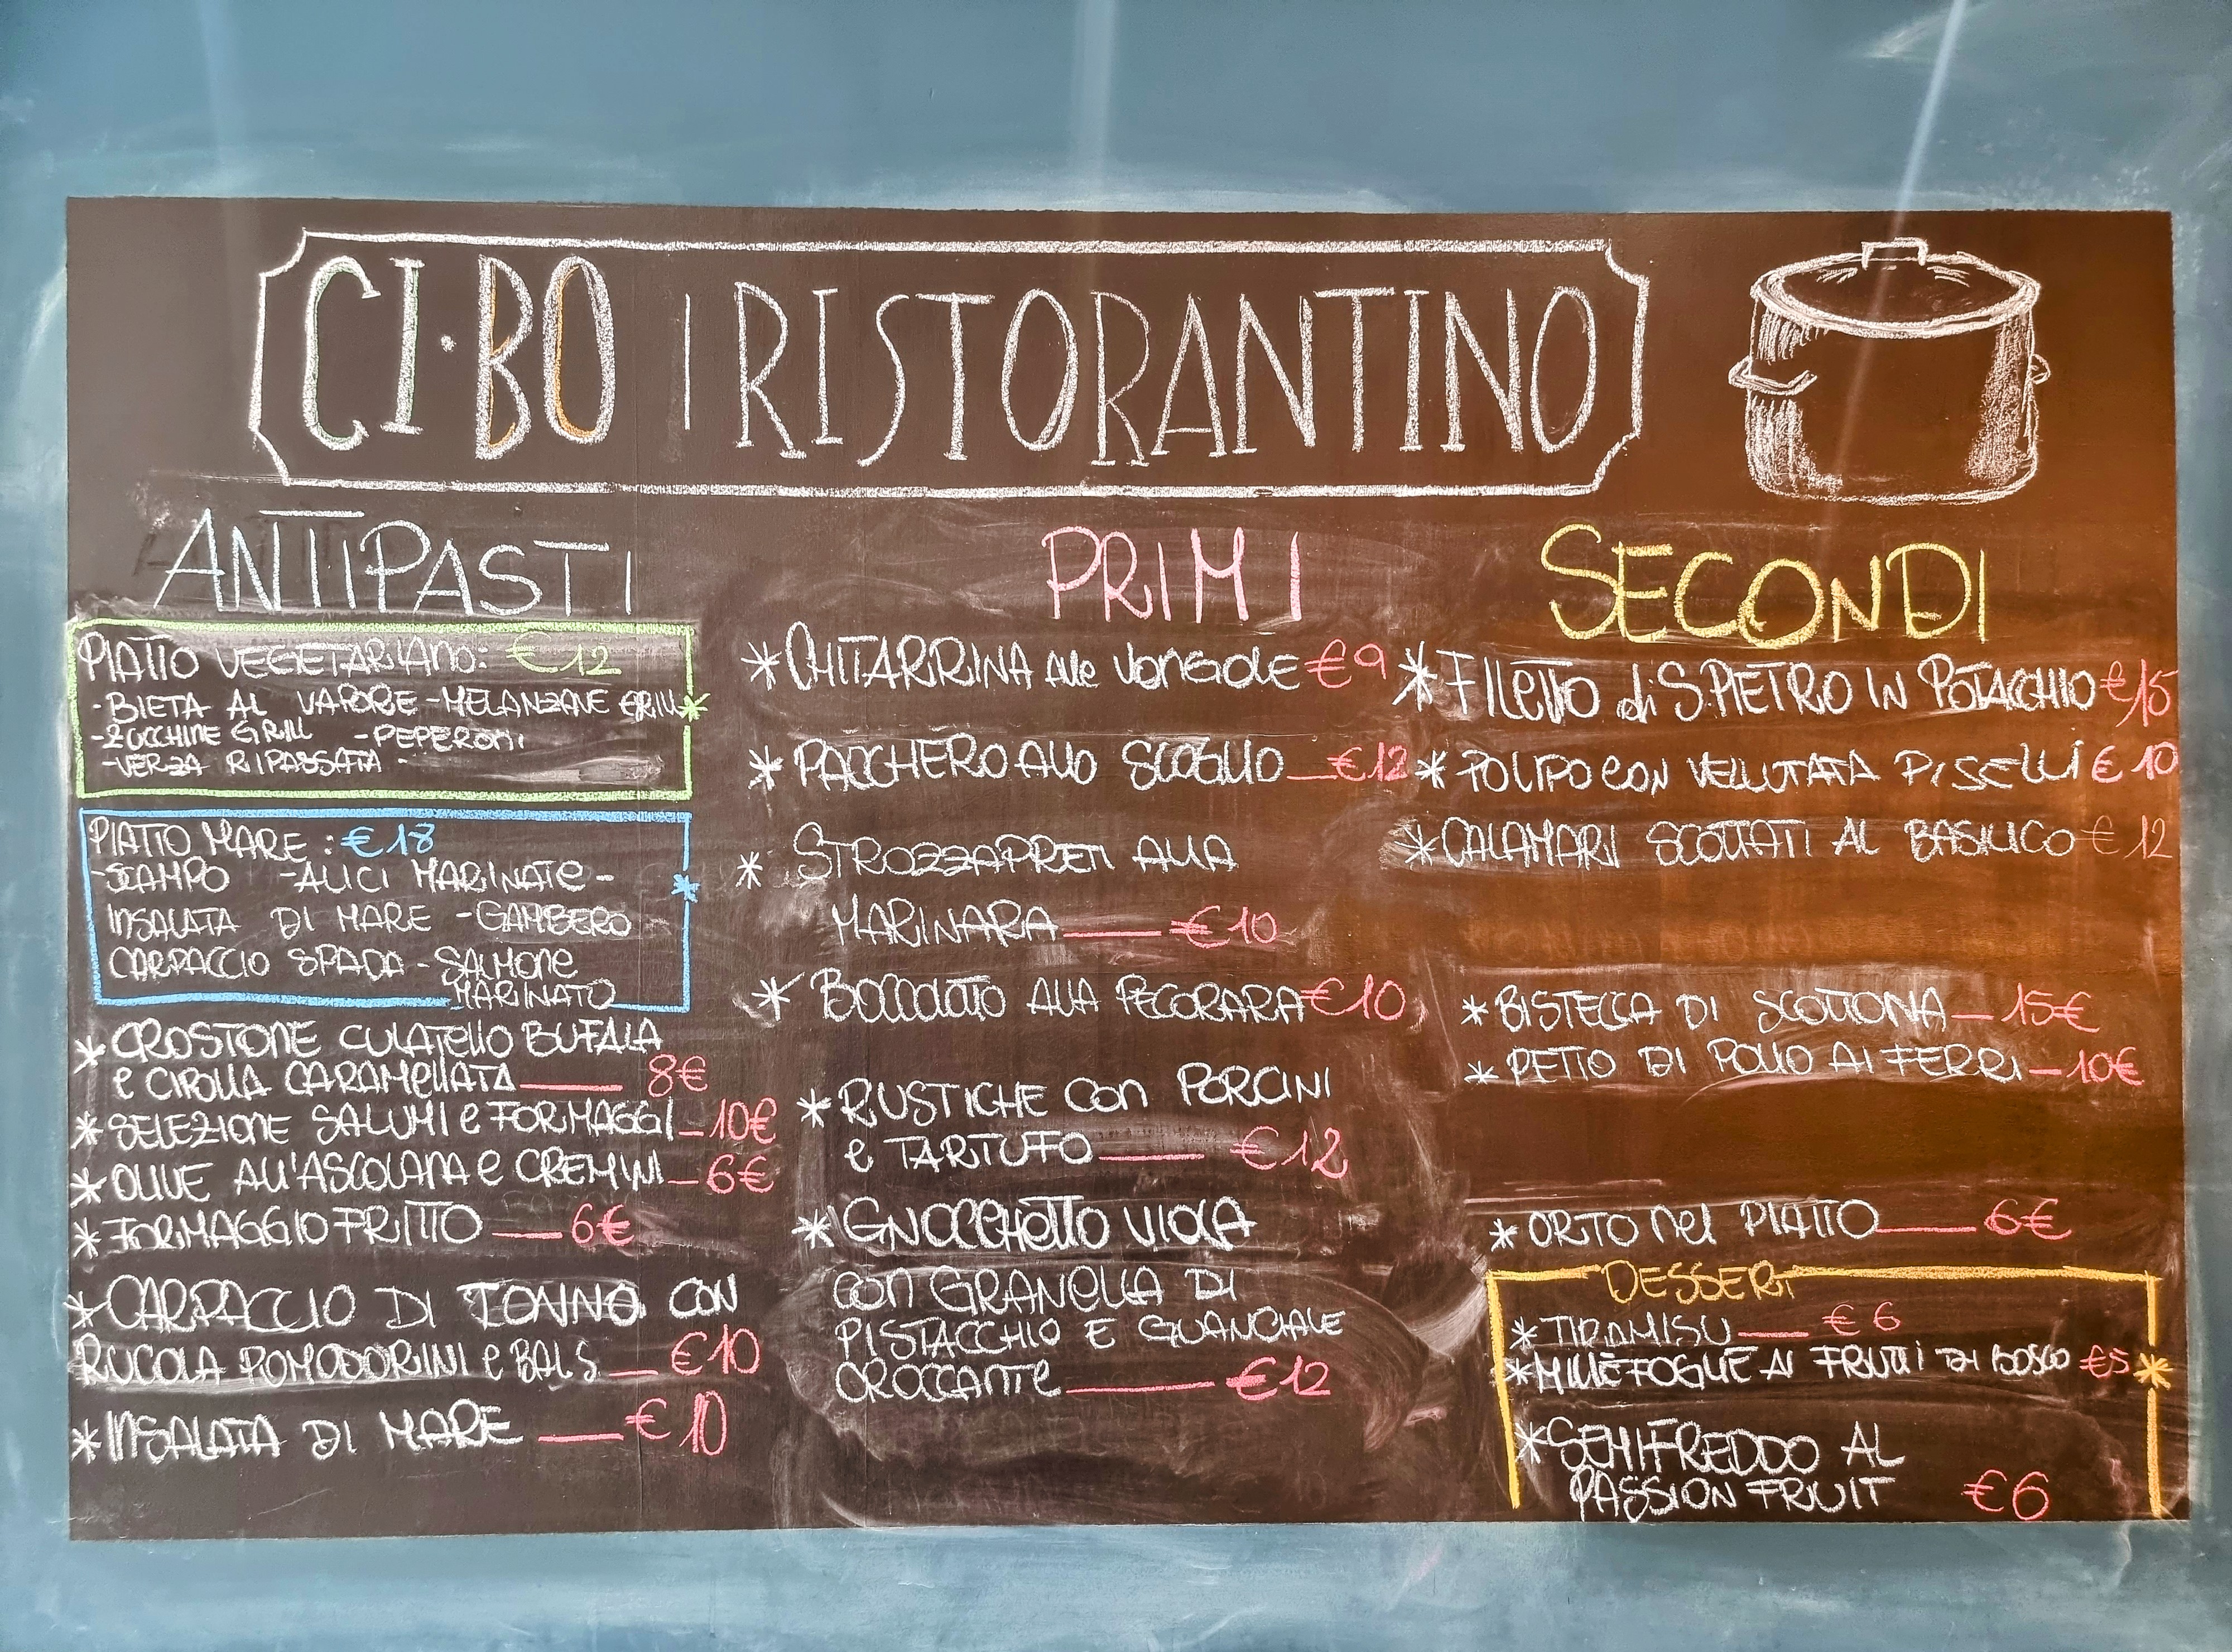 CI·BO | RISTORANTINO
ANTIPASTI
PIATTO VEGETARIANO: €12
-BIETA AL VAPORE -MELANZANE GRILL
-ZUCCHINE GRILL -PEPERONI
-VERZA RIPASSATA -
PIATTO MARE: €18
-SCAMPO -ALICI MARINATE-
INSALATA DI MARE -GAMBERO
CARPACCIO SPADA - SALMONE
MARINATO
* CROSTONE CULATELLO BUFALA
e CIPOLLA CARAMELLATA 8€
* SELEZIONE SALUMI e FORMAGGI 10€
* OLIVE ALL'ASCOLANA e CREMINI 6€
* FORMAGGIO FRITTO 6€
* CARPACCIO DI TONNO CON
RUCOLA POMODORINI e BALS €10
* INSALATA DI MARE €10
PRIMI
* CHITARRINA Alle VONGOLE €9
* PACCHERO ALLO SCOGLIO €12
* STROZZAPRETI ALLA
MARINARA €10
* BOCCOLOTTO ALLA PECORARA €10
* RUSTICHE CON PORCINI
e TARTUFO €12
* GNOCCHETTO VIOLA
CON GRANELLA DI
PISTACCHIO E GUANCIALE
CROCCANTE €12
SECONDI
* FILETTO di S.PIETRO IN POTACCHIO €15
* POLIPO CON VELLUTATA PISELLI €10
* CALAMARI SCOTTATI AL BASILICO €12
* BISTECCA DI SCOTTONA 15€
* PETTO DI POLLO AI FERRI 10€
* ORTO NEL PIATTO 6€
DESSERT
* TIRAMISU €6
* MILLEFOGLIE AI FRUTTI DI BOSCO €5
* SEMIFREDDO AL
PASSION FRUIT €6